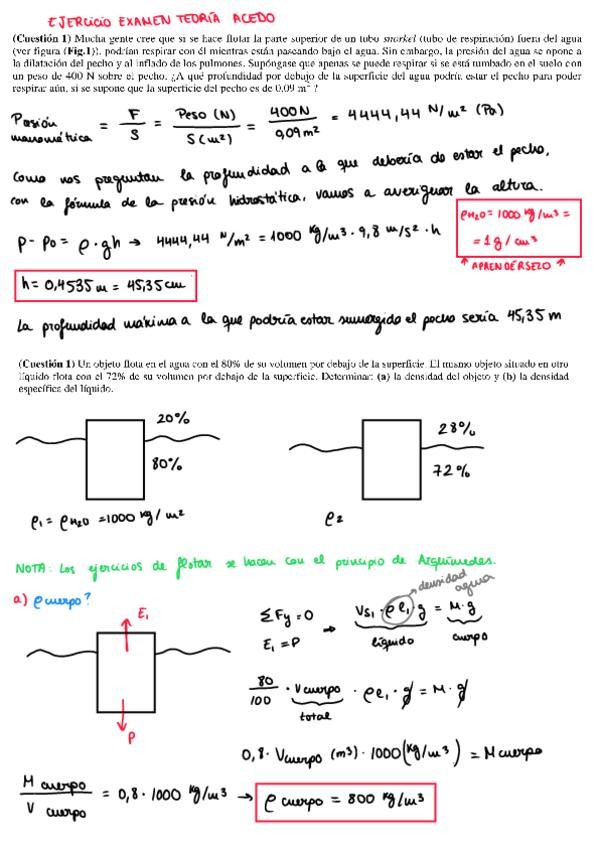 EJERCICIO EXAMEN TEORÍA ACEDO
(Cuestión 1) Mucha gente cree que si se hace flotar la parte superior de un tubo snorkel (tubo de respiración) fuera del agua
(ver figura (Fig.1)), podrían respirar con él mientras están paseando bajo el agua. Sin embargo, la presión del agua se opone a
la dilatación del pecho y al inflado de los pulmones. Supóngase que apenas se puede respirar si se está tumbado en el suelo con
un peso de 400 N sobre el pecho. ¿A qué profundidad por debajo de la superficie del agua podría estar el pecho para poder
respirar aún, si se supone que la superficie del pecho es de 0.09 m² ?
Presión manométrica = F/S = Peso (N)/S(m²) = 400N/0,09m² = 4444,44 N/m² (Pa)
Como nos preguntan la profundidad a la que debería de estar el pecho,
con la fórmula de la presión hidrostática, vamos a averiguar la altura.
P - P₀ = ρ·gh → 4444,44 N/m² = 1000 kg/m³ · 9,8 m/s² · h
ρH₂O = 1000 kg/m³ =
= 1g/cm³
↑ APRENDÉRSELO ↗
h = 0,4535m = 45,35cm
La profundidad máxima a la que podría estar sumergido el pecho sería 45,35 m
(Cuestión 1) Un objeto flota en el agua con el 80% de su volumen por debajo de la superficie. El mismo objeto situado en otro
líquido flota con el 72% de su volumen por debajo de la superficie. Determinar: (a) la densidad del objeto y (b) la densidad
específica del líquido.
20%
80%
28%
72%
ρ₁ = ρH₂O = 1000 kg/m²
ρ₂
NOTA: Los ejercicios de flotar se hacen con el principio de Arquímedes.
a) ρcuerpo?
densidad agua
E₁
P
ΣFy = 0
E₁ = P
→ Vs₁ · ρl₁ · g = M · g
líquido cuerpo
80/100 · Vcuerpo · ρl₁ · g = M · g
total
0,8 · Vcuerpo (m³) · 1000 (kg/m³) = Mcuerpo
M cuerpo/V cuerpo = 0,8 · 1000 kg/m³ → ρ cuerpo = 800 kg/m³